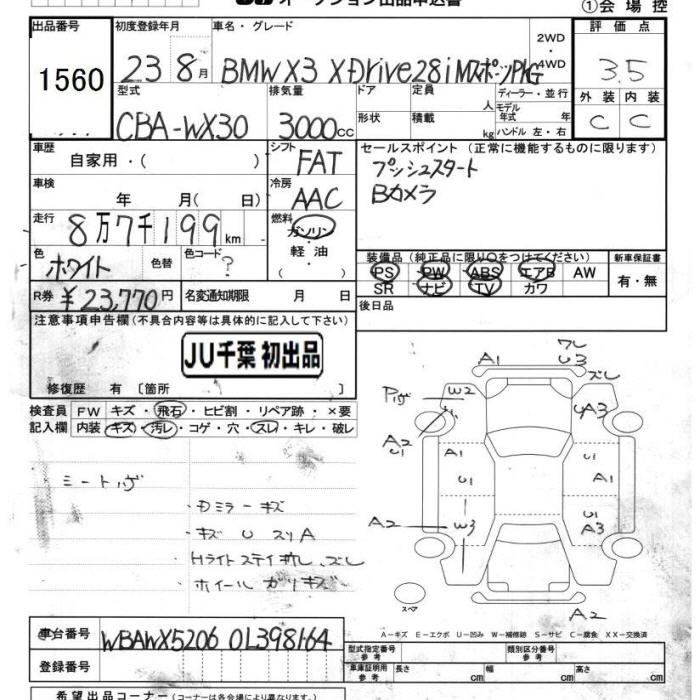 オークション出品申込書
①会場控
出品番号 1560
初度登録年月 23 8月
車名・グレード BMW X3 XDrive28i MスポーツPKG
2WD・4WD
評価点 3.5
外装 C 内装 C
型式 CBA-WX30
排気量 3000cc
ドア形状
定員 人
積載 kg
ディーラー・並行
モデル年式 年
ハンドル 左・右
車歴 自家用・( )
シフト FAT
セールスポイント (正常に機能するものに限ります)
プッシュスタート
Bカメラ
車検 年 月( 日)
冷房 AAC
走行 8万7千199km
燃料 ガソリン・軽油・
色 ホワイト 色替 色コード ?
装備品 (純正品に限り○をつけてください)
PS PW ABS エアB AW
SR ナビ TV カワ
新車保証書 有・無
R券 ¥23,770円
名変通知期限 月 日
後日品
注意事項申告欄 (不具合内容等は具体的に記入して下さい)
JU千葉 初出品
修復歴 有 [箇所 ]
検査員記入欄
FW キズ・飛石・ヒビ割・リペア跡・×要
内装 キズ・汚レ・コゲ・穴・スレ・キレ・破レ
ミートハゲ
Dミラーキズ
キズ U スリA
Hライトステイ押し ズレ
ホイール ガリキズ
A1 ワレ U3 ズレ
W2 A3
A2 U1 A1 A1
U1 A1
A2 W3 U1 A3
スペア A2
A-キズ E-エクボ U-凹み W-補修跡 S-サビ C-腐食 XX-交換済
車台番号 WBAWX5206 0L398164
登録番号
型式指定番号 参考 類別区分番号 参考
車庫証明用 参考 長さ cm 幅 cm 高さ cm
希望出品コーナー (コーナーは各会場により異なります。)